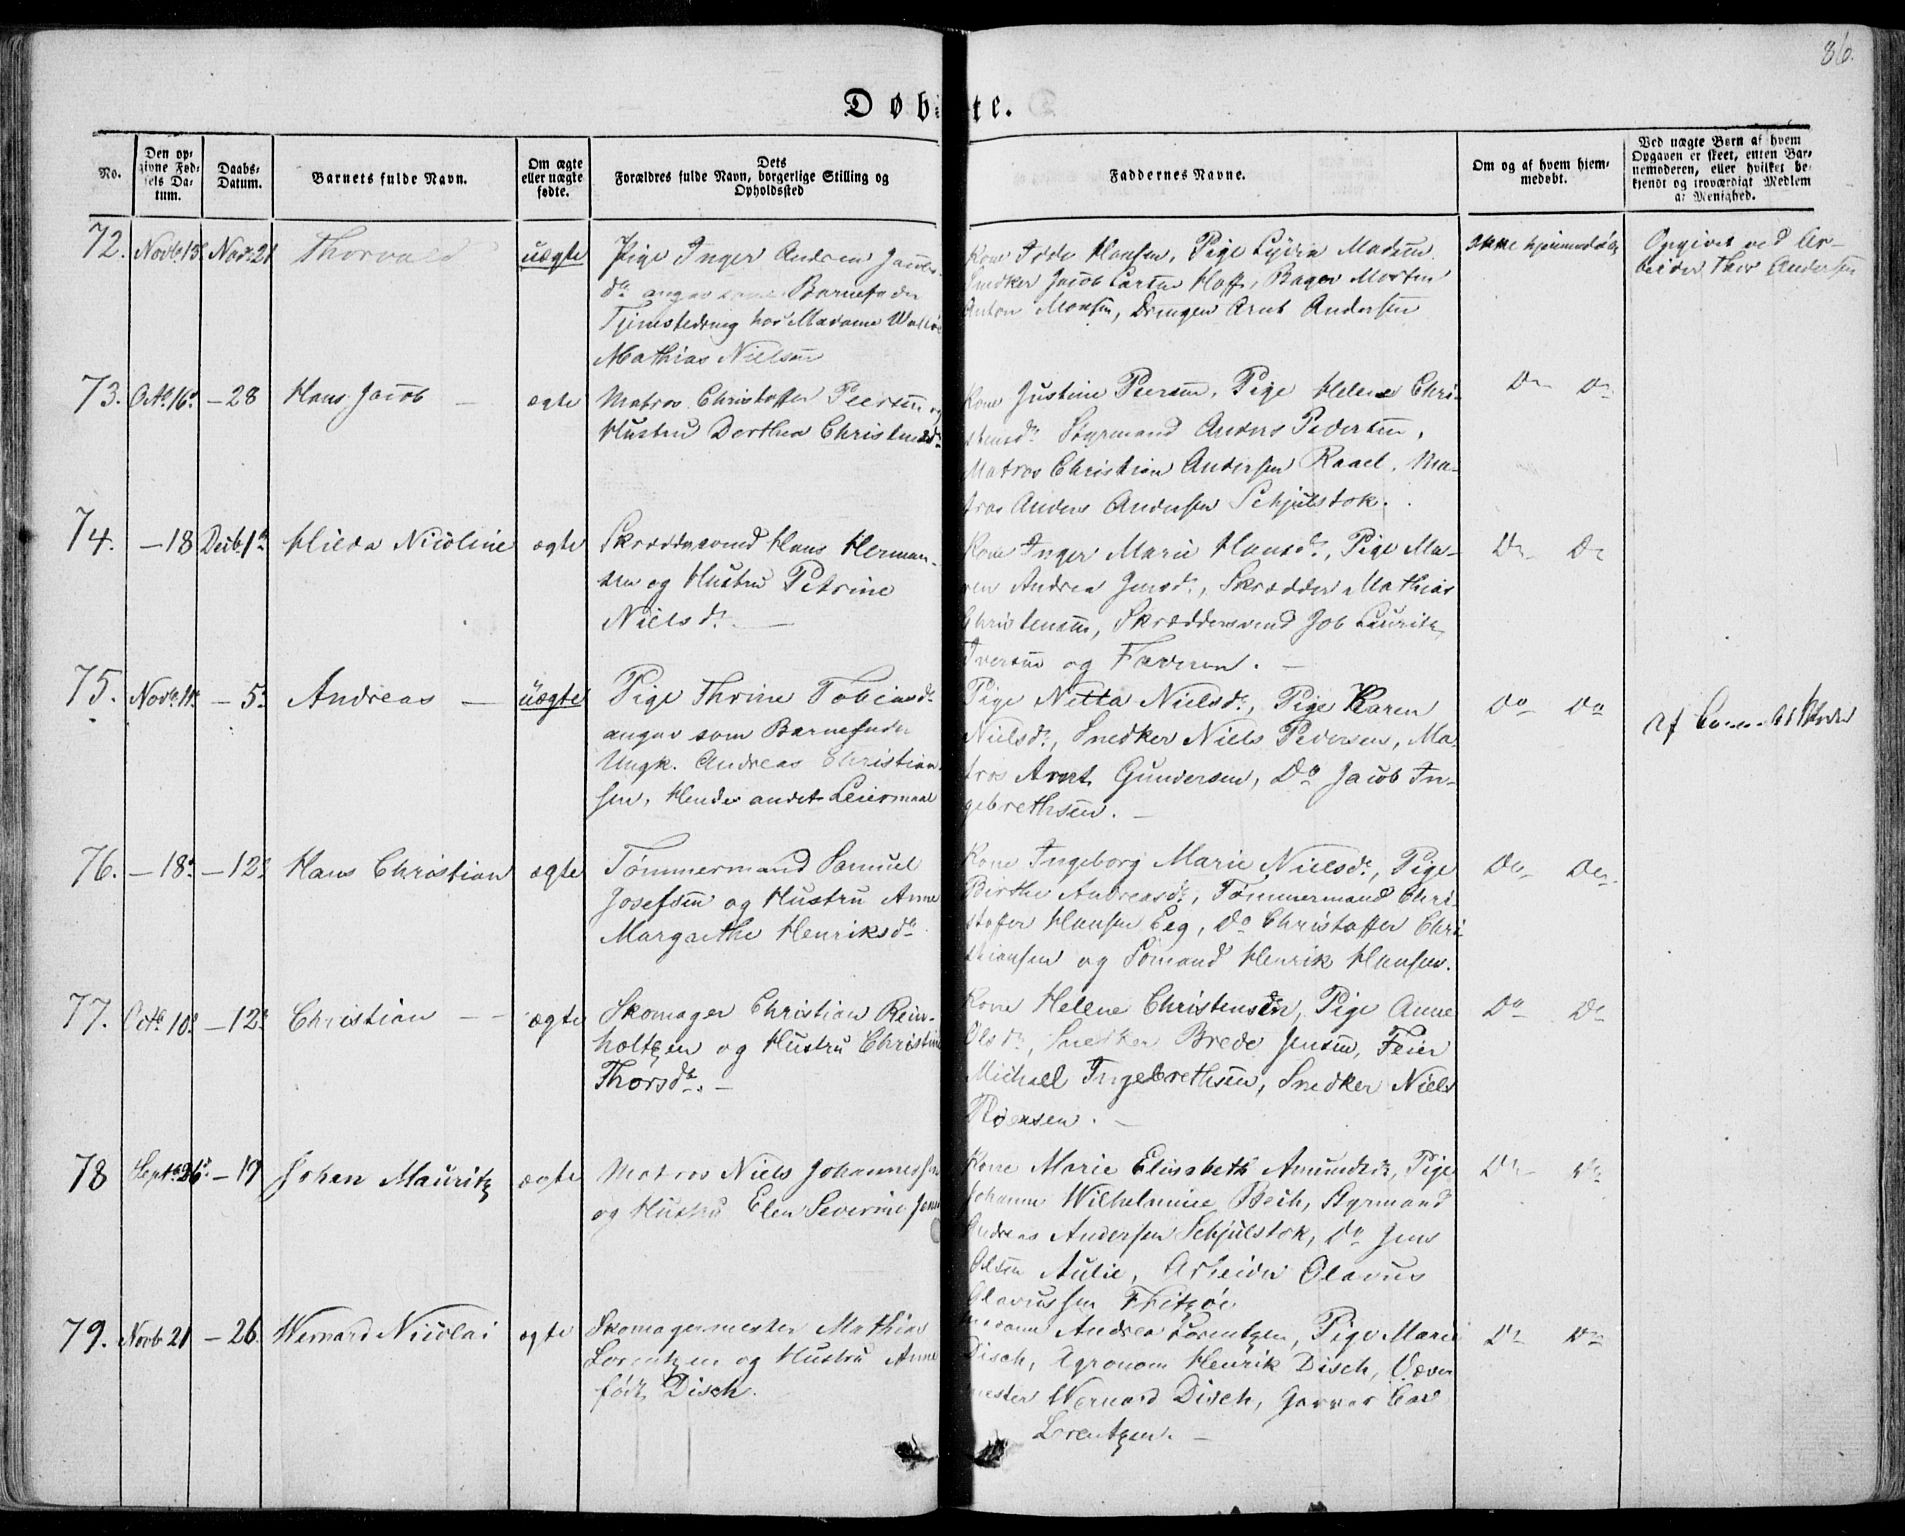 86.
Døbte.
No.
Den opgivne Fødsels Datum.
Daabs-Datum.
Barnets fulde Navn.
Om ægte eller uægte fødte.
Dets Forældres fulde Navn, borgerlige Stilling og Opholdssted
Faddernes Navne.
Om og af hvem hjemmedøbt.
Ved uægte Børn af hvem Opgaven er skeet, enten Barnemoderen, eller hvilket bekjendt og troværdigt Medlem af Menighed.
72. Novb. 15. Nov. 21 Thorvald uægte
Pige Inger Andrea Jacobs-
dr. angav som Barnefader
hos Madame
Mathias Nielsen
Kone Hansen, Pige Lydia Madsen
Snedker Jacob Larsen Hoff, Bager Morten
Anton Monsen, Drengen Arnt Andersen
Ikke hjemmedøbt
Opgivet ved Ar-
beider Thor Andersen
73. Octb. 16. - 28 Hans Jacob - ægte
Matros Christoffer Peersen og
Hustru Dorthea Christensdr.
Kone Justine Peersen, Pige Helene Chri-
stensdr. Styrmand Anders Pedersen,
Matros Christian Andersen Raael, Ma-
tros Anders Andersen Schjulstok.
Do Do
74. - 18 Decb. 1 Hilda Nicoline ægte
Skræddersvend Hans Herman-
sen og Hustru Petrine
Nielsdr. -
Kone Inger Marie Hansdr., Pige Ma-
ren Andrea Jensdr., Skrædder Mathias
Christensen, Skræddersvend Job Lauritz
Iversen og Faderen. -
Do Do
75. Novb. 11. - 5. Andreas - uægte
Pige Thrine Tobiasdr.
angav som Barnefader
Ungk. Andreas Christian-
sen, Hendes andet Leiermaal
Pige Netta Nielsdr., Pige Karen
Nielsdr., Snedker Niels Pedersen, Ma-
tros Arnt Gundersen, Do Jacob In-
gebrethsen. -
Do Do
Af
76. - 18. - 12. Hans Christian ægte
Tømmermand Samuel
Josefsen og Hustru Anne
Margrethe Henriksdr.
Kone Ingeborg Marie Nielsdr., Pige
Birthe Andreasdr., Tømmermand Chri-
stofer Hansen Eeg, Do Christoffer Chri-
stiansen og Sømand Henrik Hansen.
Do Do
77. Octb. 10. - 12. Christian - - ægte
Skomager Christian Rein-
holtzen og Hustru Christine
Thorsdr. -
Kone Helene Christensen, Pige Anne
Olsdr., Snedker Brede Jensen, Feier
Michael Ingebrethsen, Snedker Niels
Do Do
78 Septb. 26. - 19 Johan Mauritz ægte
Matros Niels Johannessen
og Hustru Elen Severine
Kone Marie Elisabeth Amundsdr., Pige
Johanne Wilhelmine Bech, Styrmand
Andreas Andersen Schjulstok, Do Jens
Olsen Aulie, Arbeider Olavus
Olavussen Fritzøe
Do Do
79. Novb. 21 - 26. Wernard Nicolai ægte
Skomagermester Mathias
Lorentzen og Hustru Anne
født Disch.
Madame Andrea Lorentzen, Pige Marie
Disch, Agronom Henrik Disch, Væver
mester Wernard Disch, Garver Carl
Lorentzen. -
Do Do